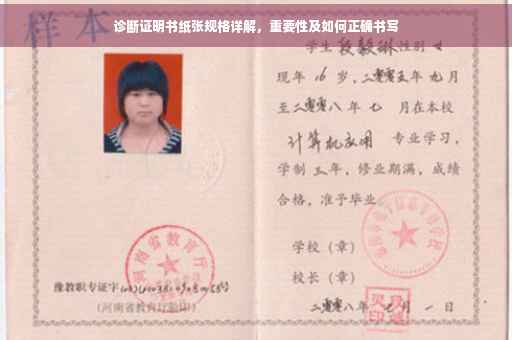 诊断证明书纸张规格详解，重要性及如何正确书写
样本
学生 段毅琳 性别 女
现年 16 岁，二零零五年 九月
至二零零八年 七 月在本校
计算机应用 专业学习，
学制 三年，修业期满，成绩
合格，准予毕业
学校（章）
校长（章）
二零零八年 七月 一 日
河南省教育厅
豫教职专证字
（河南省教育厅验印）